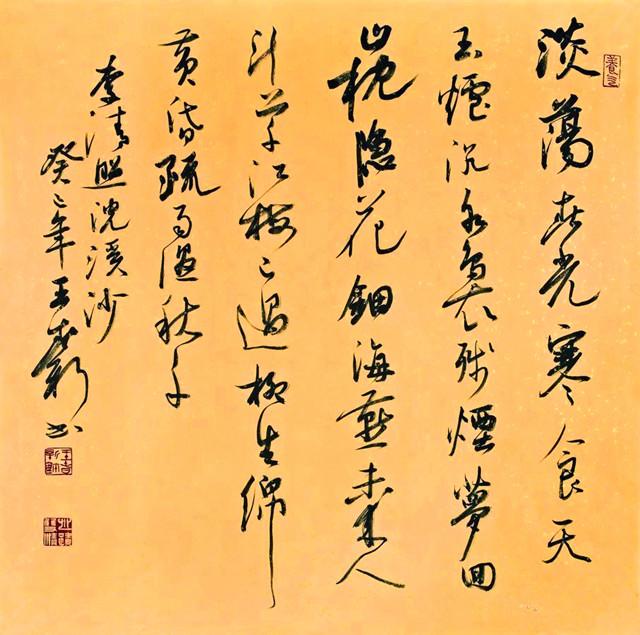 淡蕩春光寒食天
玉爐沉水裊残煙夢回
山枕隐花鈿海燕未来人
斗草江梅已過柳生綿
黄昏疏雨湿秋千
李清照浣溪沙
癸巳年王書